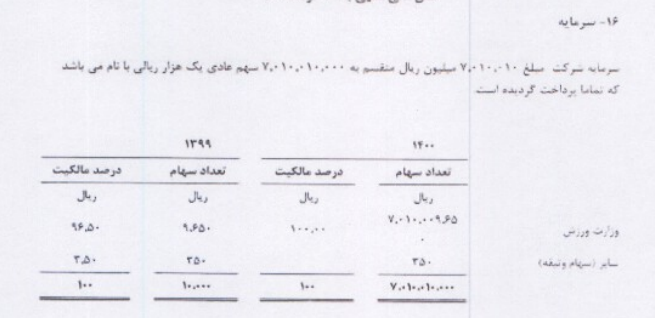 ۱۶- سرمایه
سرمایه شرکت مبلغ ۷,۰۱۰,۰۱۰ میلیون ریال منقسم به ۷,۰۱۰,۰۱۰,۰۰۰ سهم عادی یک هزار ریالی با نام می باشد
که تماما پرداخت گردیده است
۱۴۰۰ ۱۳۹۹
تعداد سهام درصد مالکیت تعداد سهام درصد مالکیت
ریال ریال ریال ریال
وزارت ورزش ۷,۰۱۰,۰۰۹,۶۵۰ ۱۰۰,۰۰ ۹,۶۵۰ ۹۶,۵۰
سایر (سهام وثیقه) ۳۵۰ ۳۵۰ ۳,۵۰
۷,۰۱۰,۰۱۰,۰۰۰ ۱۰۰ ۱۰,۰۰۰ ۱۰۰